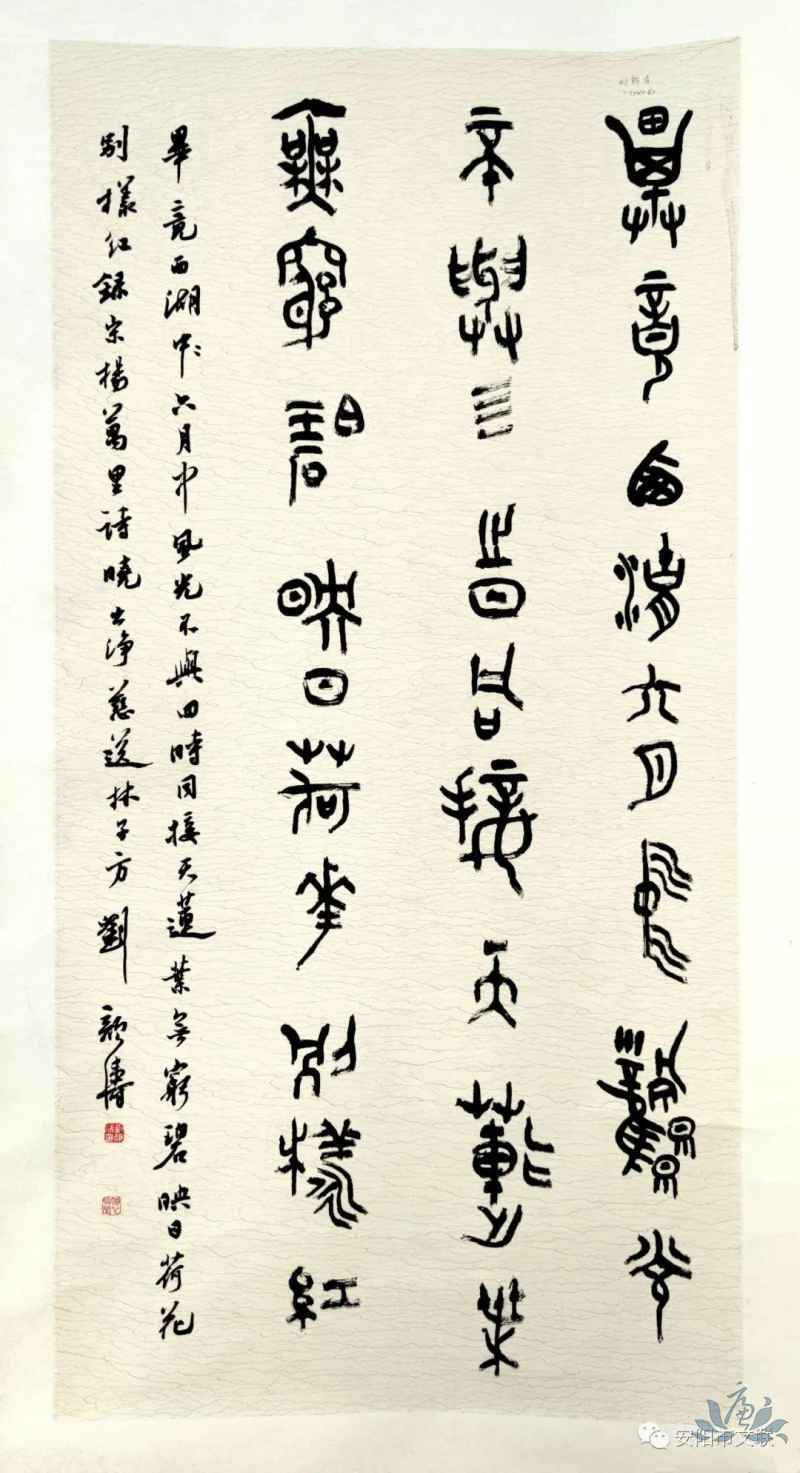 畢竟西湖六月中風光
不與四時同接天蓮葉
無窮碧映日荷花別樣紅
畢竟西湖中六月中風光不與四時同接天蓮葉無窮碧映日荷花
別樣紅錄宋楊萬里詩曉出淨慈送林子方 劉顏濤
安阳市文联